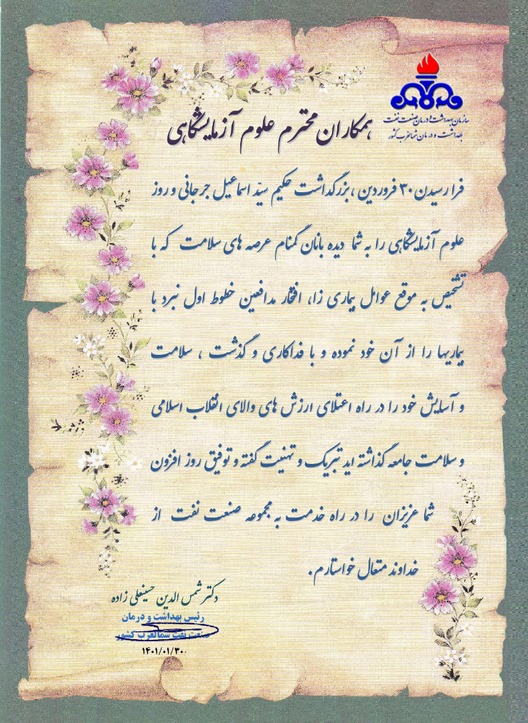 سازمان بهداشت و درمان صنعت نفت
بهداشت و درمان شمالغرب کشور
همکاران محترم علوم آزمایشگاهی
فرا رسیدن ۳۰ فروردین ، بزرگداشت حکیم سید اسماعیل جرجانی و روز
علوم آزمایشگاهی را به شما دیده بانان گمنام عرصه های سلامت که با
تشخیص به موقع عوامل بیماری زا، افتخار مدافعین خطوط اول نبرد با
بیماریها را از آن خود نموده و با فداکاری و گذشت ، سلامت
و آسایش خود را در راه اعتلای ارزش های والای انقلاب اسلامی
و سلامت جامعه گذاشته اید تبریک و تهنیت گفته و توفیق روز افزون
شما عزیزان را در راه خدمت به مجموعه صنعت نفت از
خداوند متعال خواستارم.
دکتر شمس الدین حسینعلی زاده
رئیس بهداشت و درمان
صنعت نفت شمالغرب کشور
۱۴۰۱/۰۱/۳۰